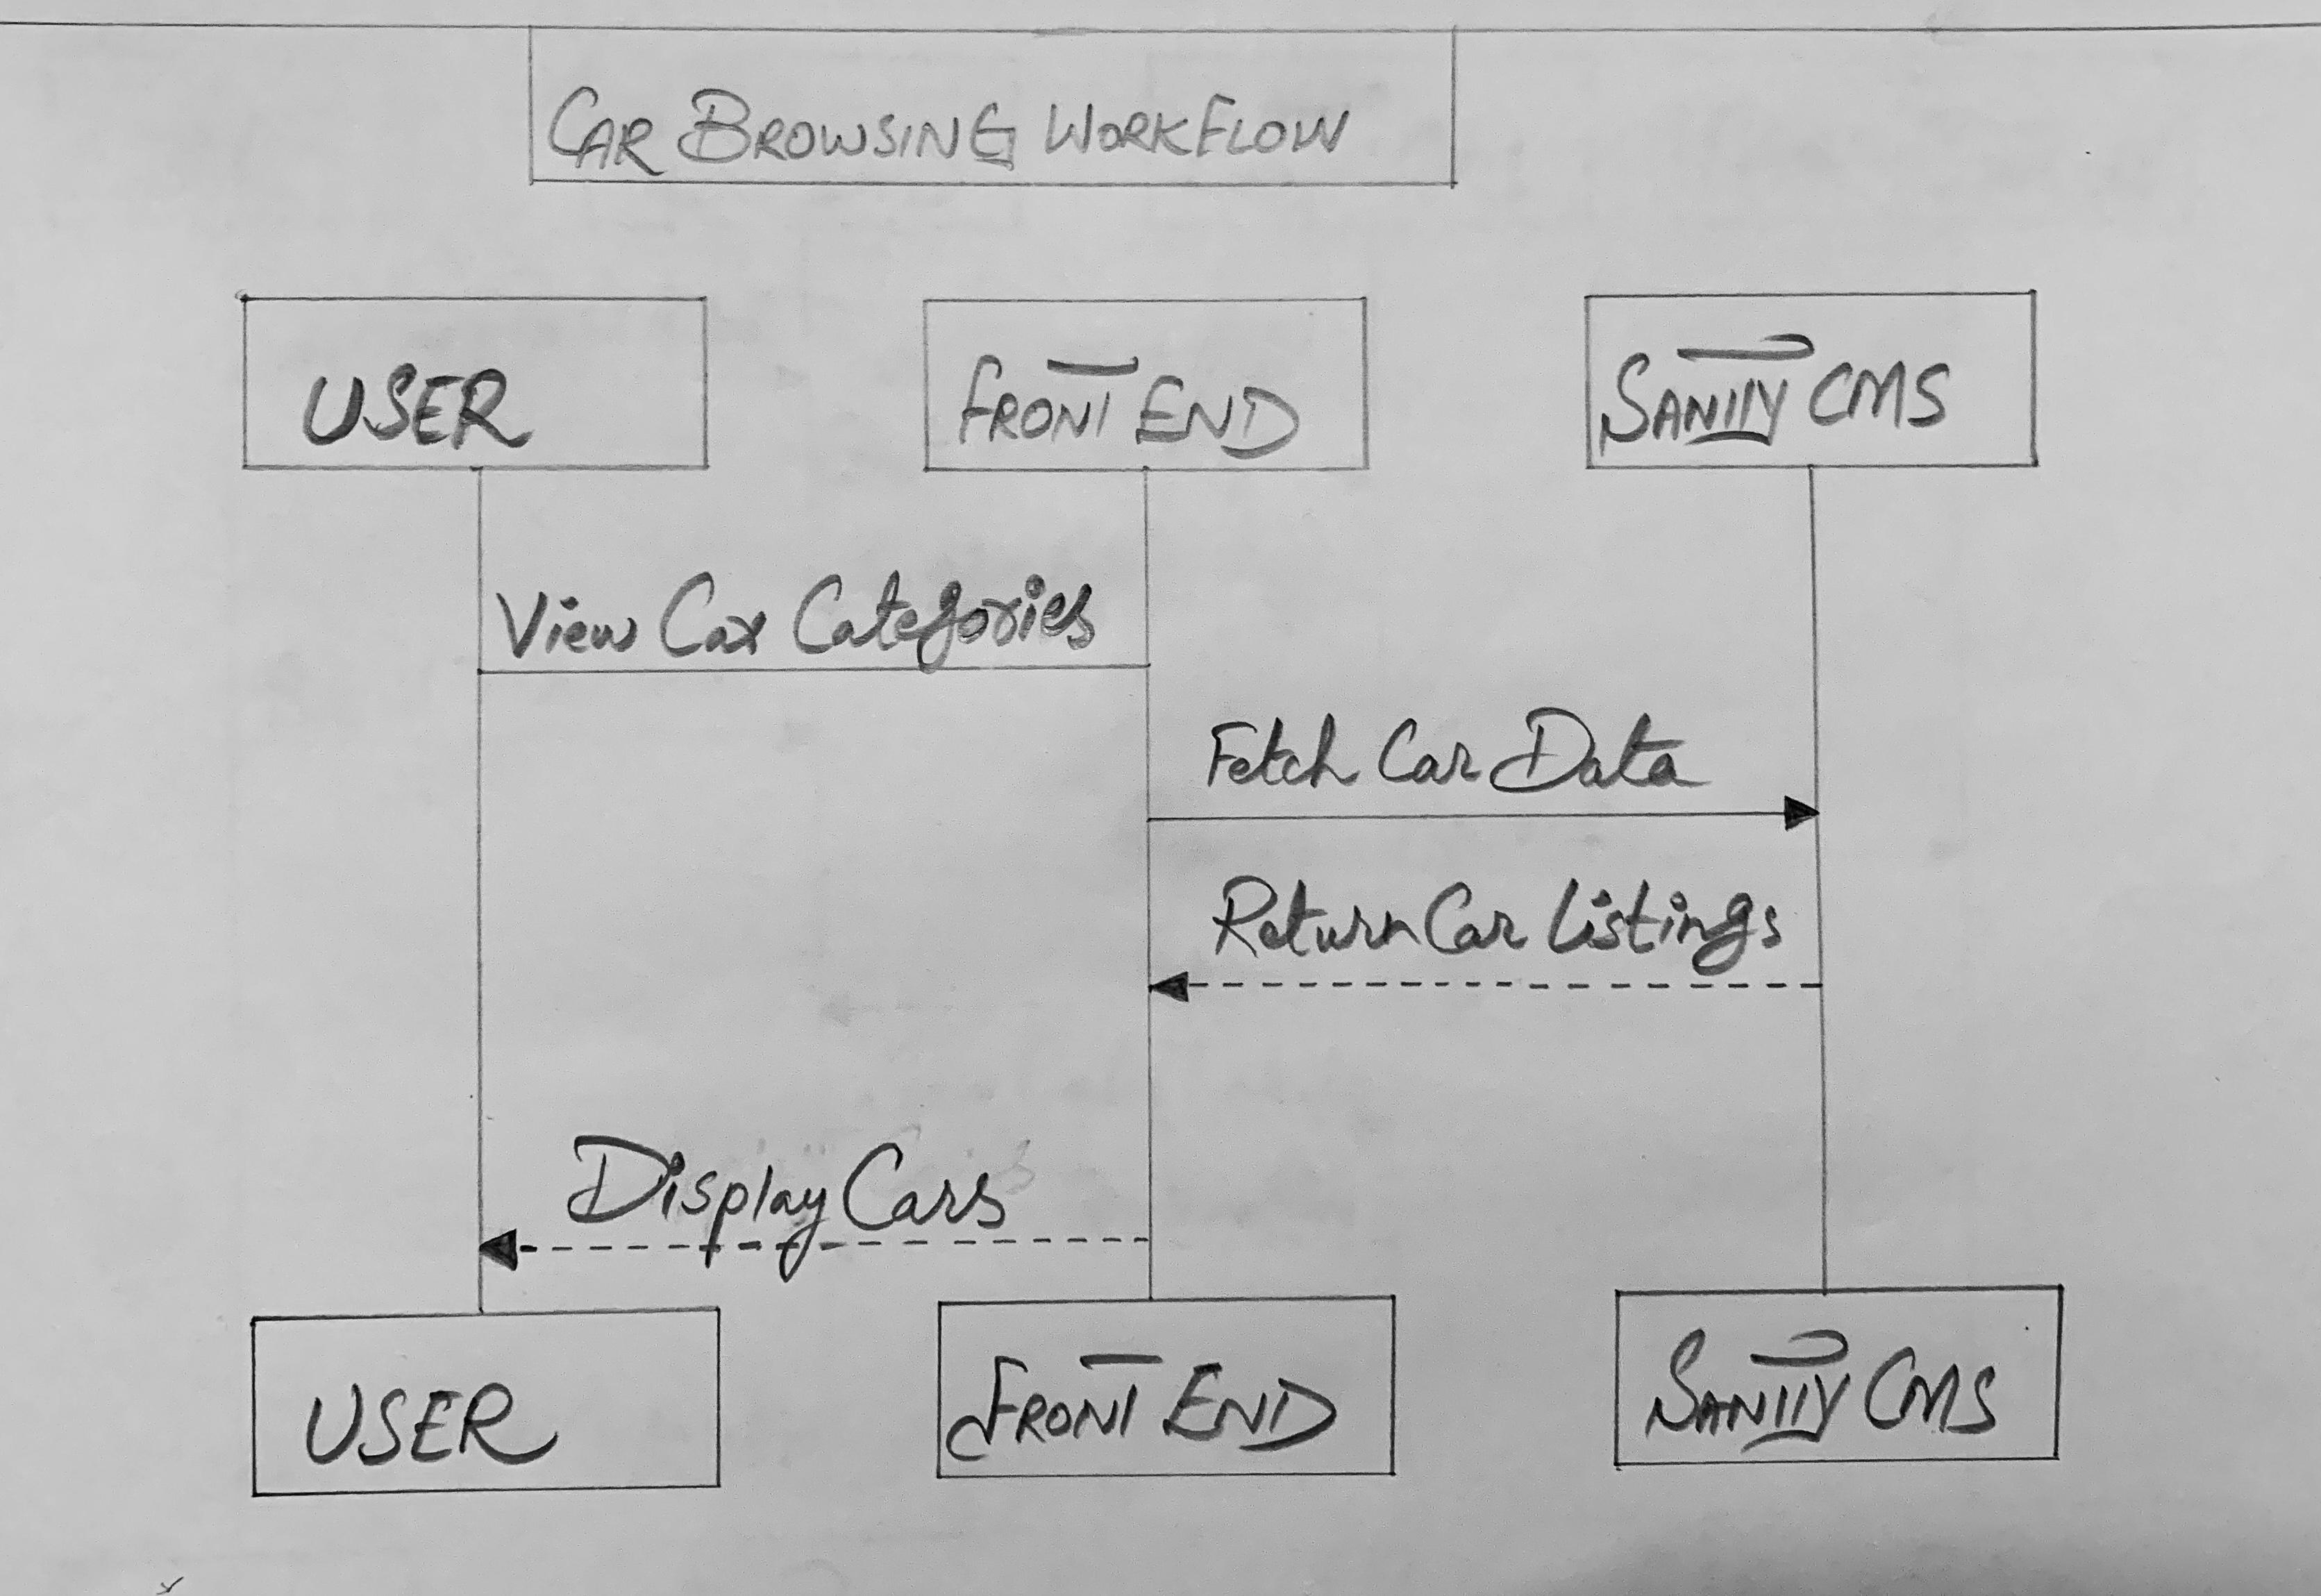 CAR BROWSING WORKFLOW
USER
FRONT END
SANITY CMS
View Car Categories
Fetch Car Data
Return Car Listings
Display Cars
USER
FRONT END
SANITY CMS